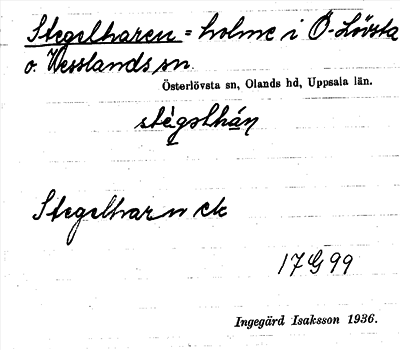 Stegelharen = holme i Ö-Lövsta
o. Wesslands sn.
Österlövsta sn, Olands hd, Uppsala län.
Stegelhar n ek
17 G 99
Ingegärd Isaksson 1936.